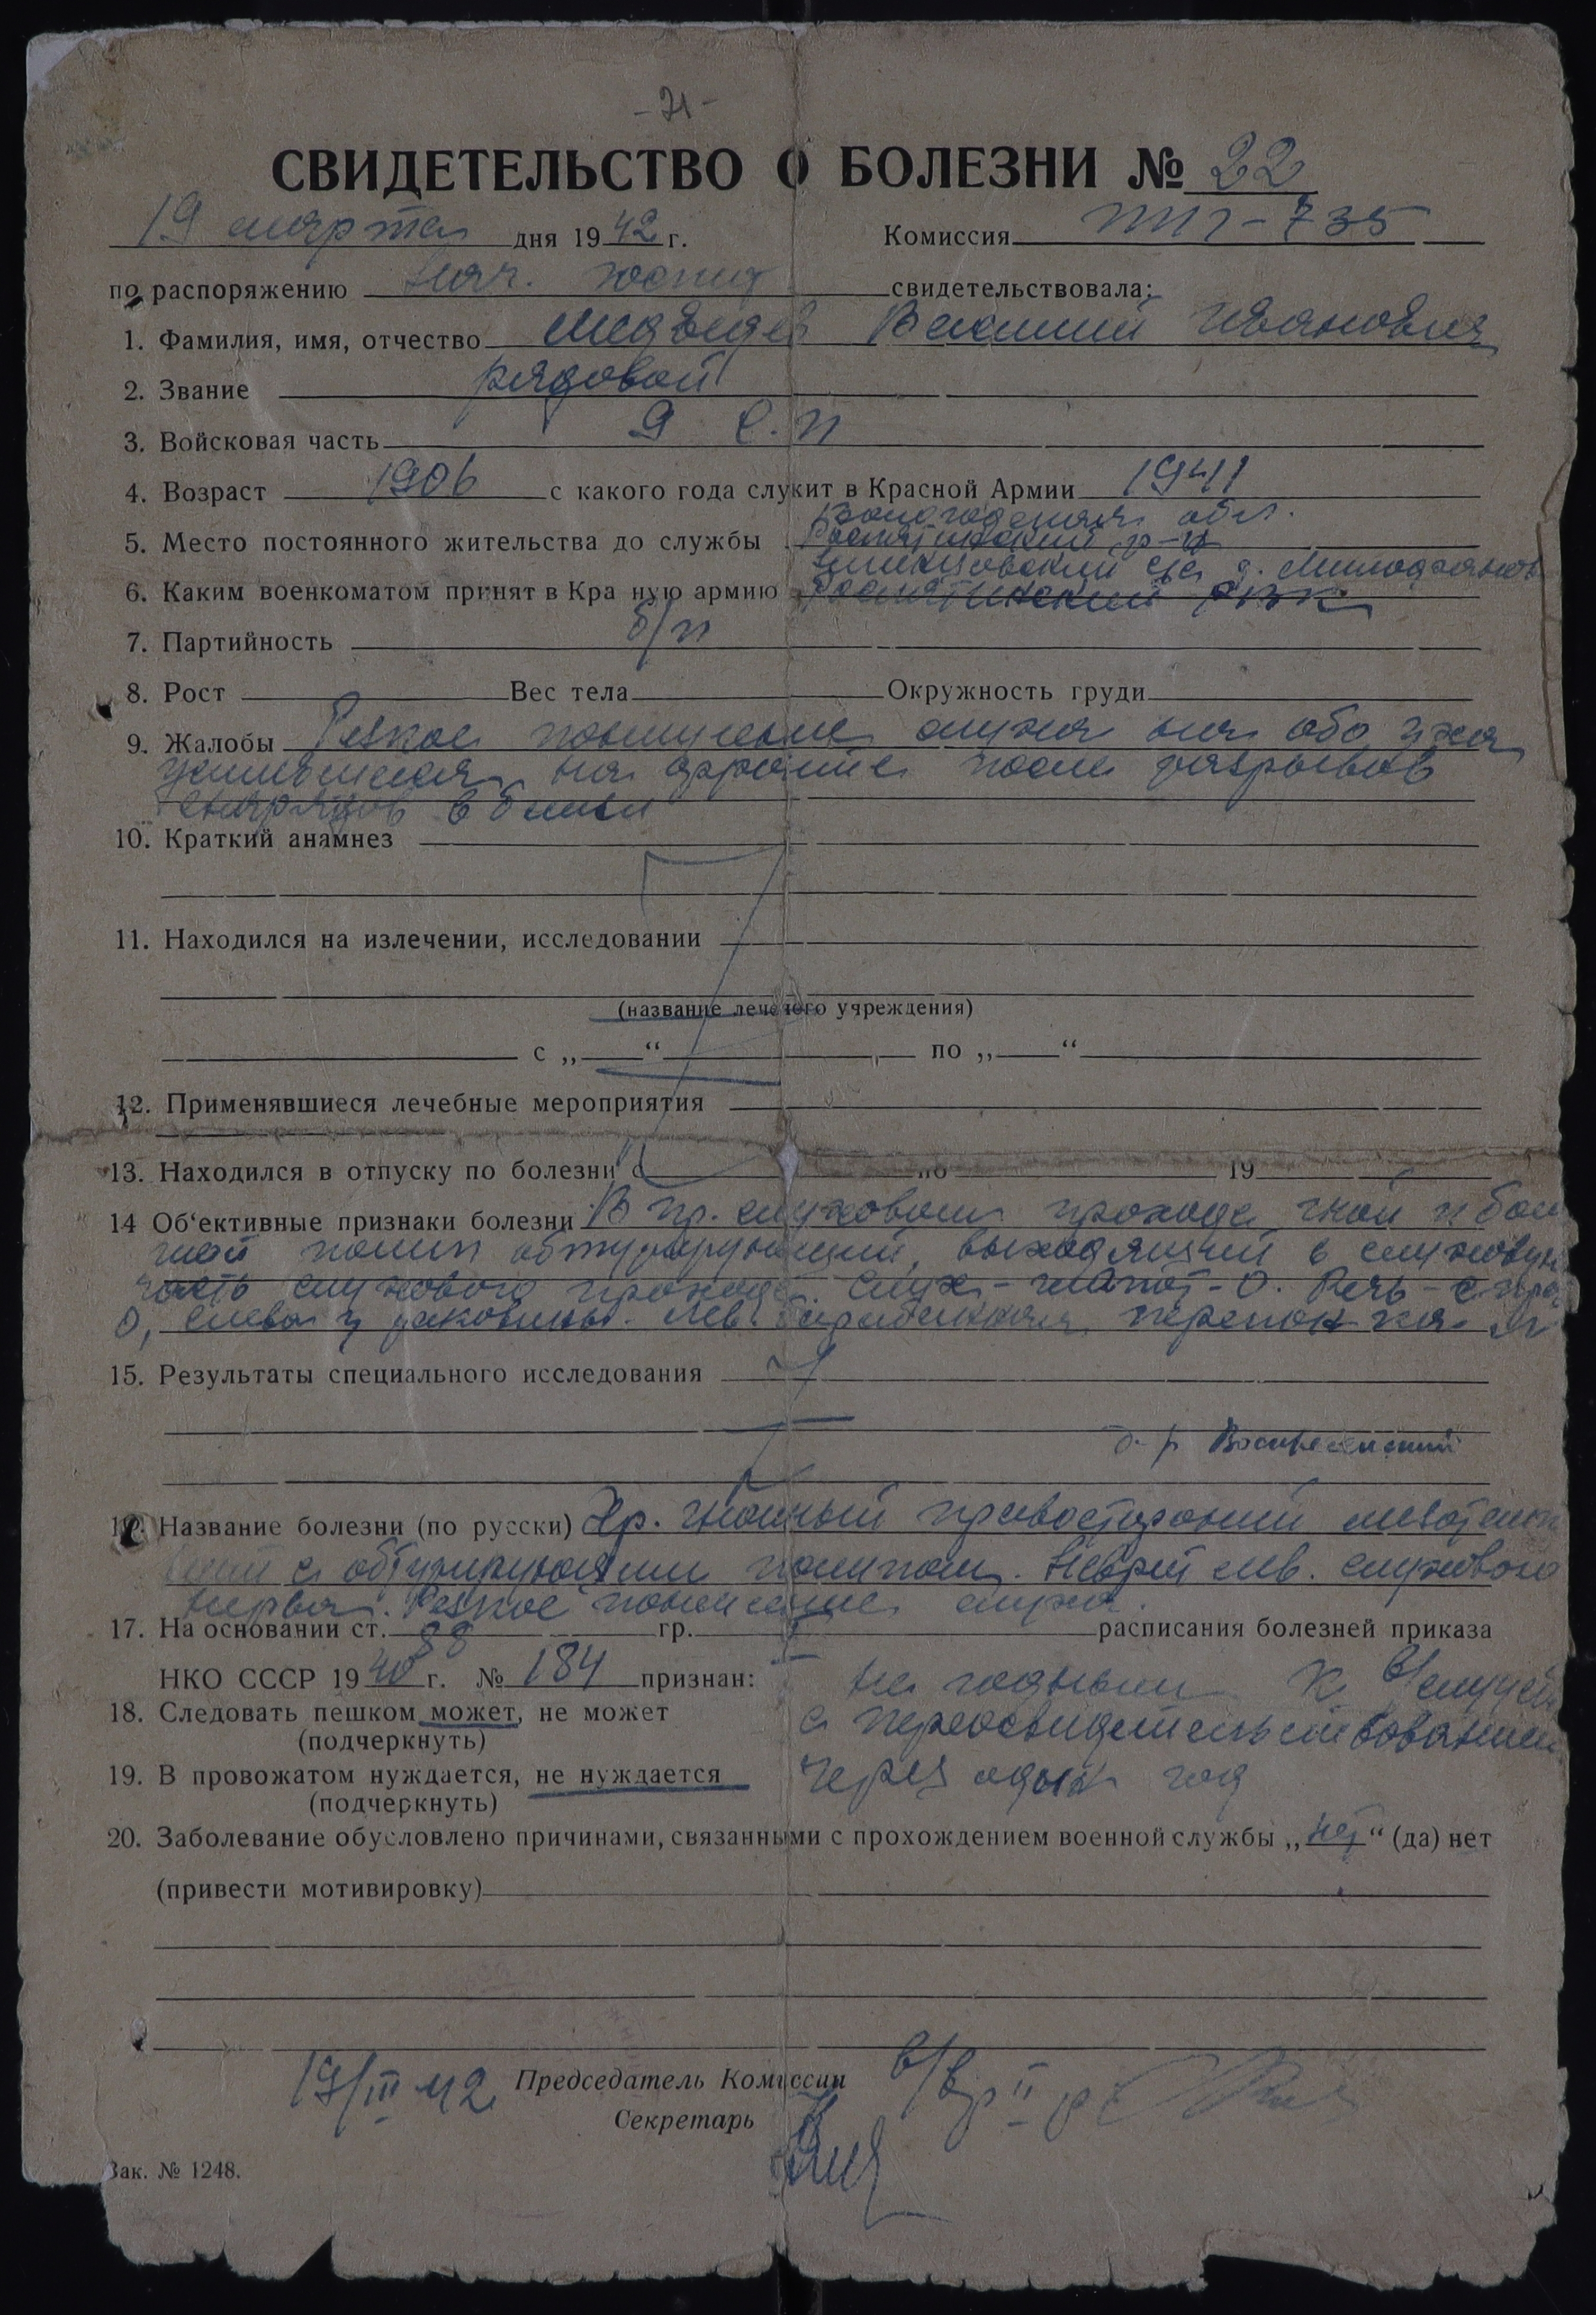 - 71 -
СВИДЕТЕЛЬСТВО О БОЛЕЗНИ № 22
19 марта дня 1942 г. Комиссия ППГ-735
по распоряжению Нач. госпит свидетельствовала:
1. Фамилия, имя, отчество Медведев Василий Иванович
2. Звание рядовой
3. Войсковая часть 9 с.п
4. Возраст 1906 с какого года служит в Красной Армии 1941
Вологодская обл.
5. Место постоянного жительства до службы Рослятинский р-н
с/с д.
6. Каким военкоматом принят в Кра ную армию Рослятинский РВК
7. Партийность б/п
8. Рост Вес тела Окружность груди
9. Жалобы Резкое понижение слуха на оба уха
на фронте после разрывов
снарядов вблизи
10. Краткий анамнез
11. Находился на излечении, исследовании
(название лечечого учреждения)
с „ “ по „ “
12. Применявшиеся лечебные мероприятия
13. Находился в отпуску по болезни с по 19
14 Об‘ективные признаки болезни В пр. слуховом проходе гной и боль
шой полип обтурирующий, выходящий в слуховую
часть слухового прохода. Слух - шепот - 0. Речь - справа
0, слева у раковины. Лев. барабанная перепонка
15. Результаты специального исследования
д-р Воскресенский
16. Название болезни (по русски) Хр. гнойный правосторонний мезотим
панит с обтурирующим полипом. Неврит лев. слухового
нерва. Резкое понижение слуха.
17. На основании ст. 88 гр. I расписания болезней приказа
НКО СССР 1940 г. № 184 признан: не годным к в/службе
18. Следовать пешком может, не может с переосвидетельствованием
(подчеркнуть)
19. В провожатом нуждается, не нуждается через один год
(подчеркнуть)
20. Заболевание обусловлено причинами, связанными с прохождением военной службы „нет“ (да) нет
(привести мотивировку)
19/III 42 Председатель Комиссии в/вр II р
Секретарь
Зак. № 1248.